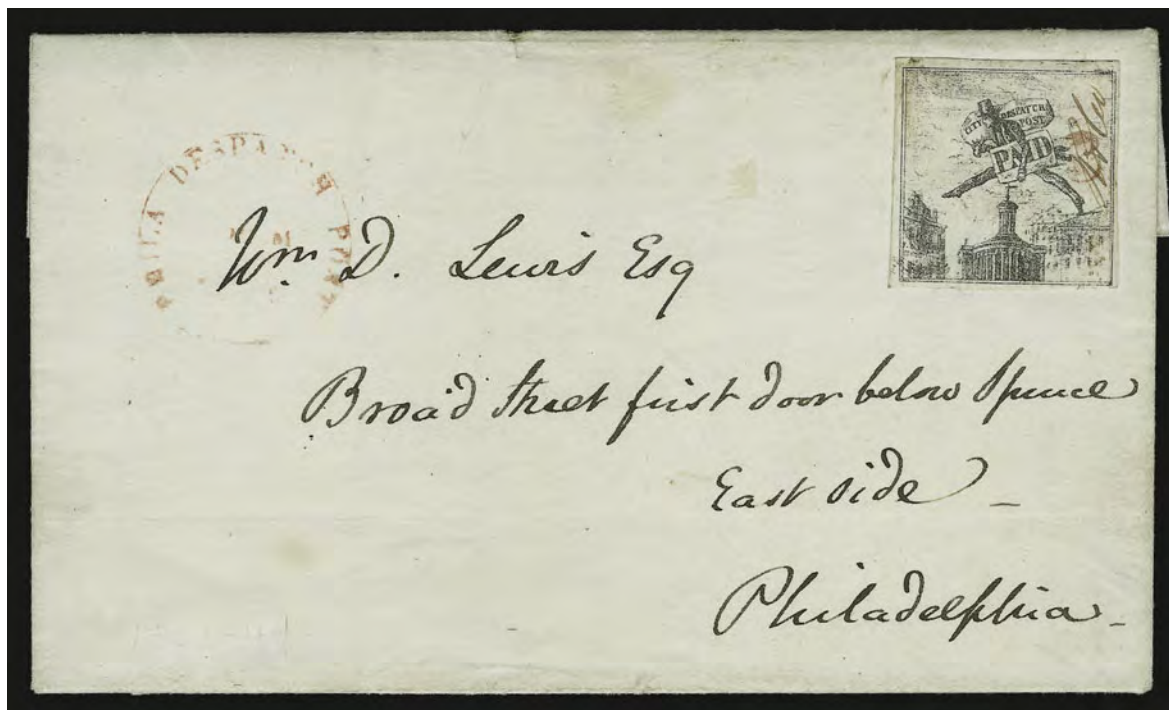 PHILA DESPATCH POST
CITY DESPATCH
POST
PMD
Wm. D. Lewis Esq
Broad Street first door below Spruce
East side _
Philadelphia _